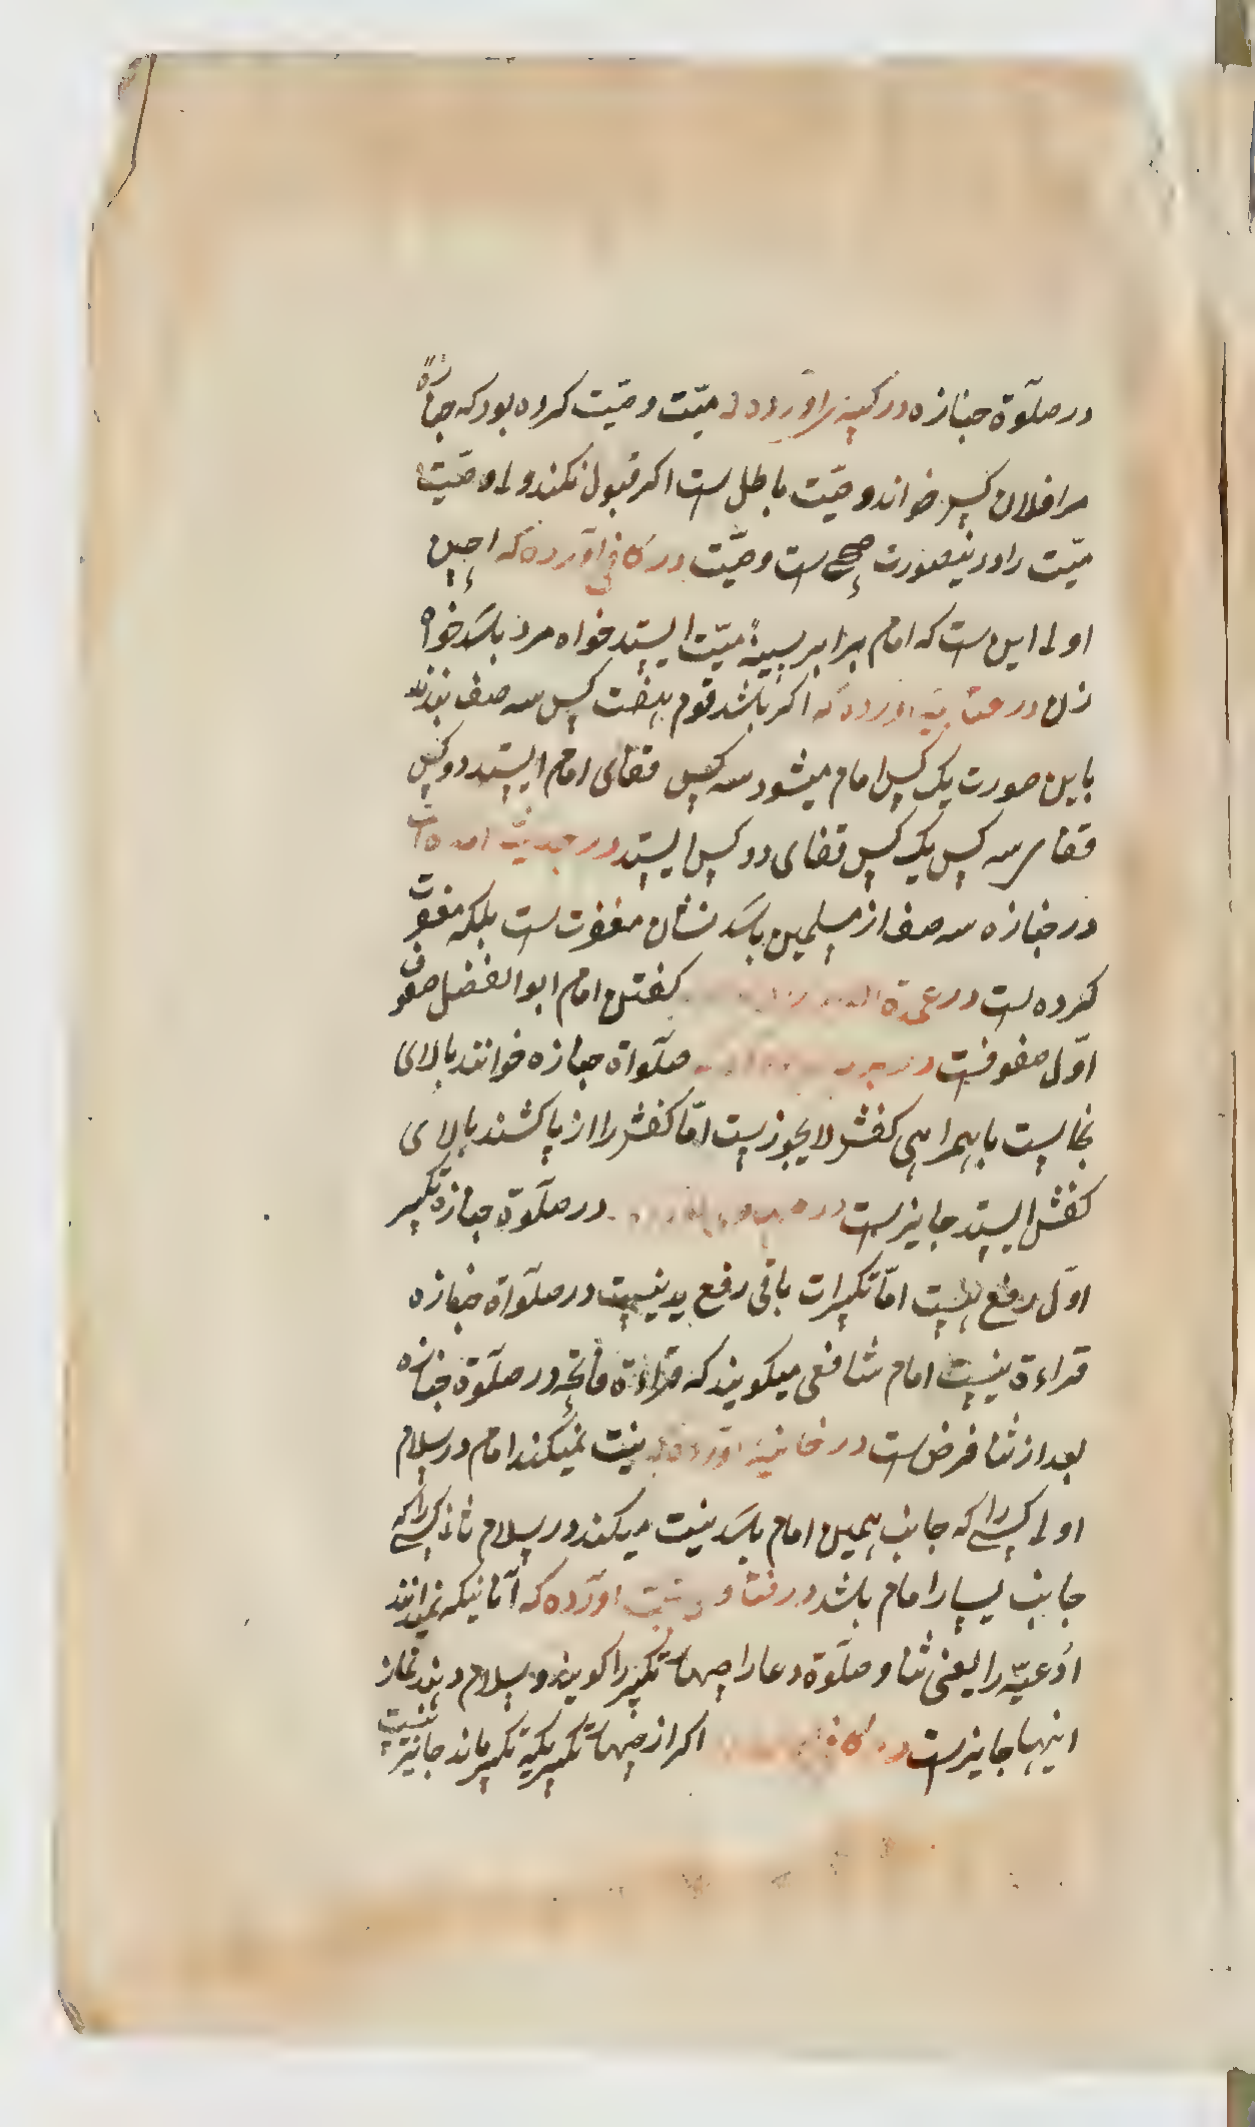 در صلوٰة جنازه در کبیر آورده که میّت وصیّت کرده بود که جنازهٔ
مرا فلان کس خواند وصیّت باطل است اکر قبول نکند ولی وصیّت
میّت را درینصورت صحیح است وصیّت در کافی آورده که احسن
اولی این است که امام برابر سینهٔ میّت ایستد خواه مرد باشد خواه
زن در عتابیه آورده که اکر باشد قوم هفت کس سه صف بزنند
باین صورت یک کس امام میشود سه کس قفای امام ایستد دو کس
قفای سه کس یک کس قفای دو کس ایستد در حدیث آمده است
در جنازه سه صف از مسلمین باشد نشان مغفرت است بلکه مغفرت
کرده است در عمدة کفتن امام ابوالفضل صفوف
اوّل صفوفست در صلوٰاة جنازه خوانند بالای
نجاست با همراهی کفش لایجوز است امّا کفش را از پا کشند بالای
کفش ایستد جایز است در در صلوٰة جنازه تکبیر
اوّل رفع هست امّا تکبیرات باقی رفع ید نیست در صلوٰاة جنازه
قراءة نیست امام شافعی میکویند که قراءة فاتحه در صلوٰة جنازه
بعد از ثنا فرض است در خانیه آورده که نیت نمیکند امام در سلام
اولی کسے را که جانب یمین امام باشد نیت میکند در سلام ثانی کسے را که
جانب یسار امام باشد در فتاو حجّت آورده که آنانیکه نمیدانند
ادعیّه را یعنی ثنا و صلوٰة دعا را چهار تکبیر را کویند و سلام دهند نماز
اینها جایز است در کافی اکر از چهار تکبیر یک تکبیر ماند جایز نیست